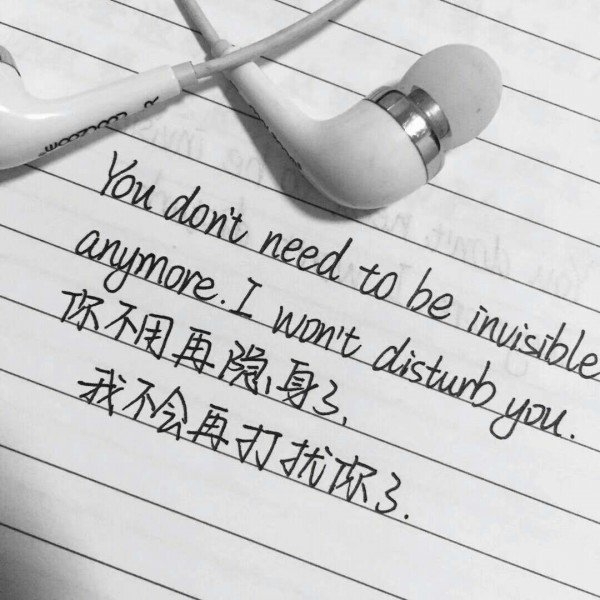 You don't need to be invisible
anymore. I won't disturb you.
你不用再隐身了,
我不会再打扰你了.